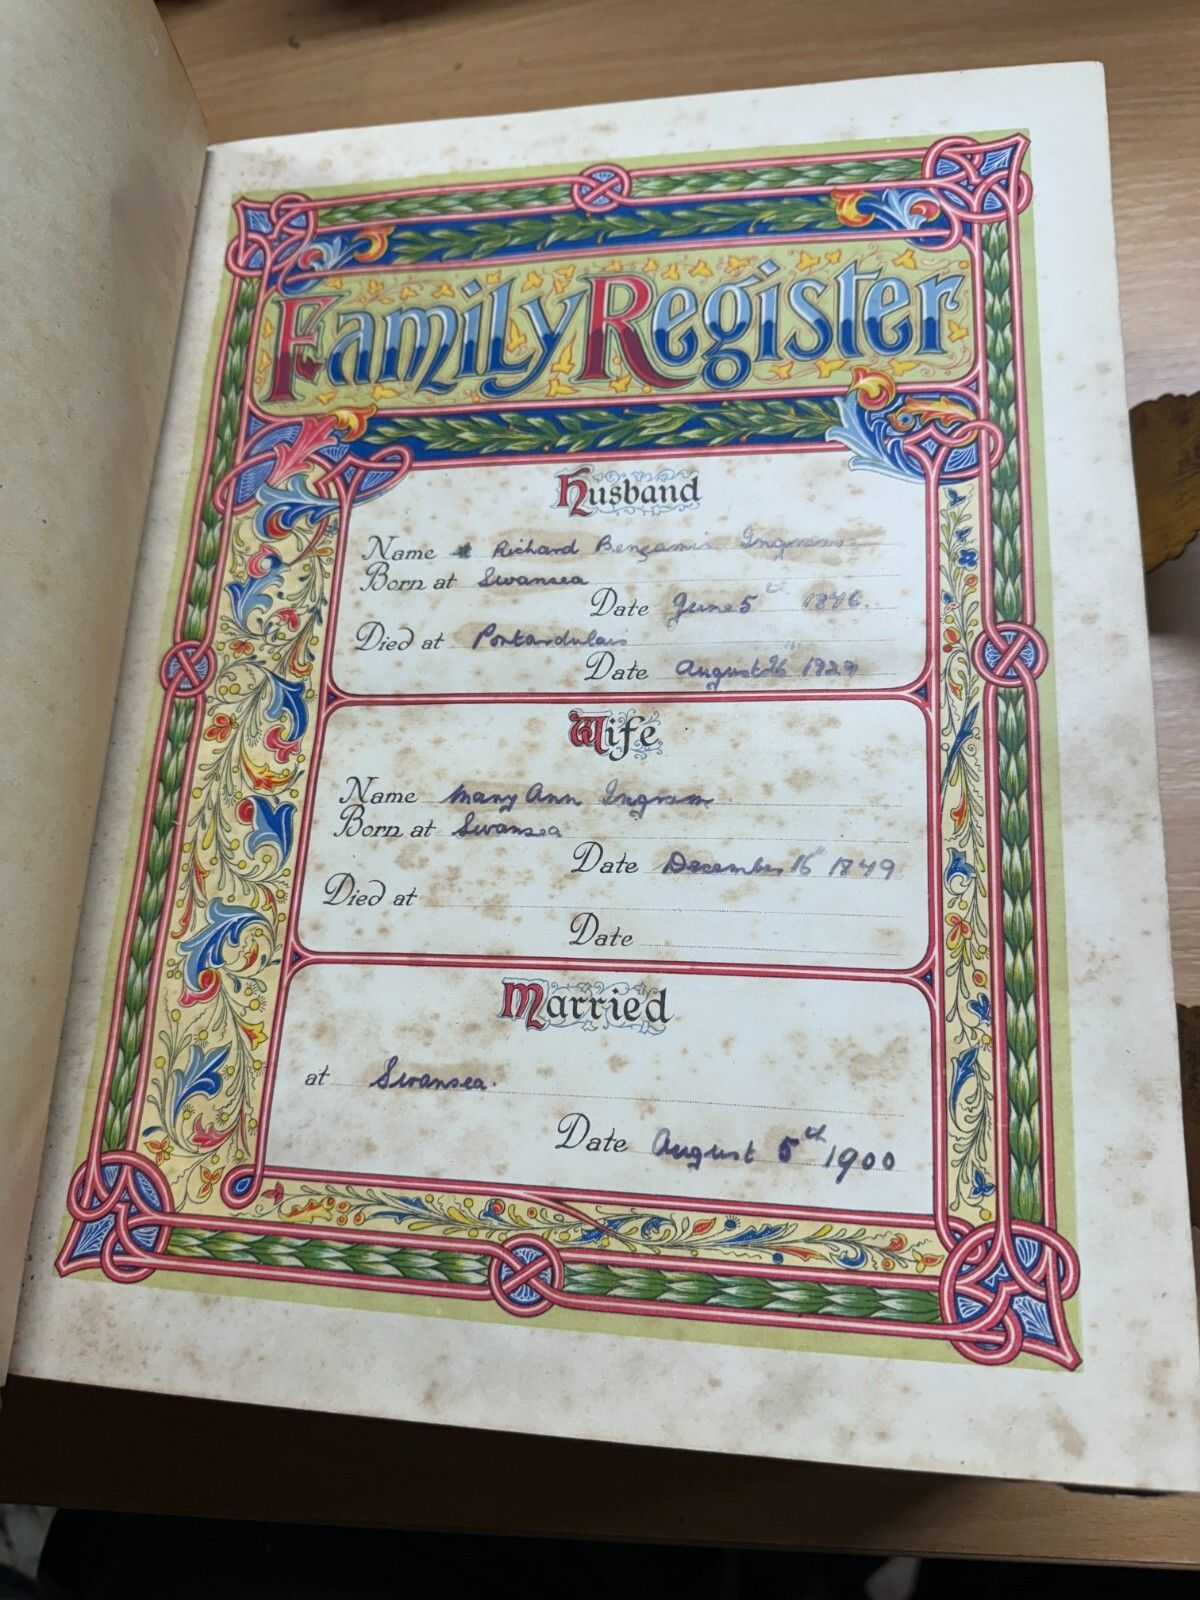 Family Register
Husband
Name Richard Benjamin
Born at Swansea
Date June 5th 1876.
Died at Pontardulais
Date August 26th 1929
Wife
Name Mary Ann Ingram
Born at Swansea
Date December 16th 1849
Died at
Date
Married
at Swansea.
Date August 5th 1900